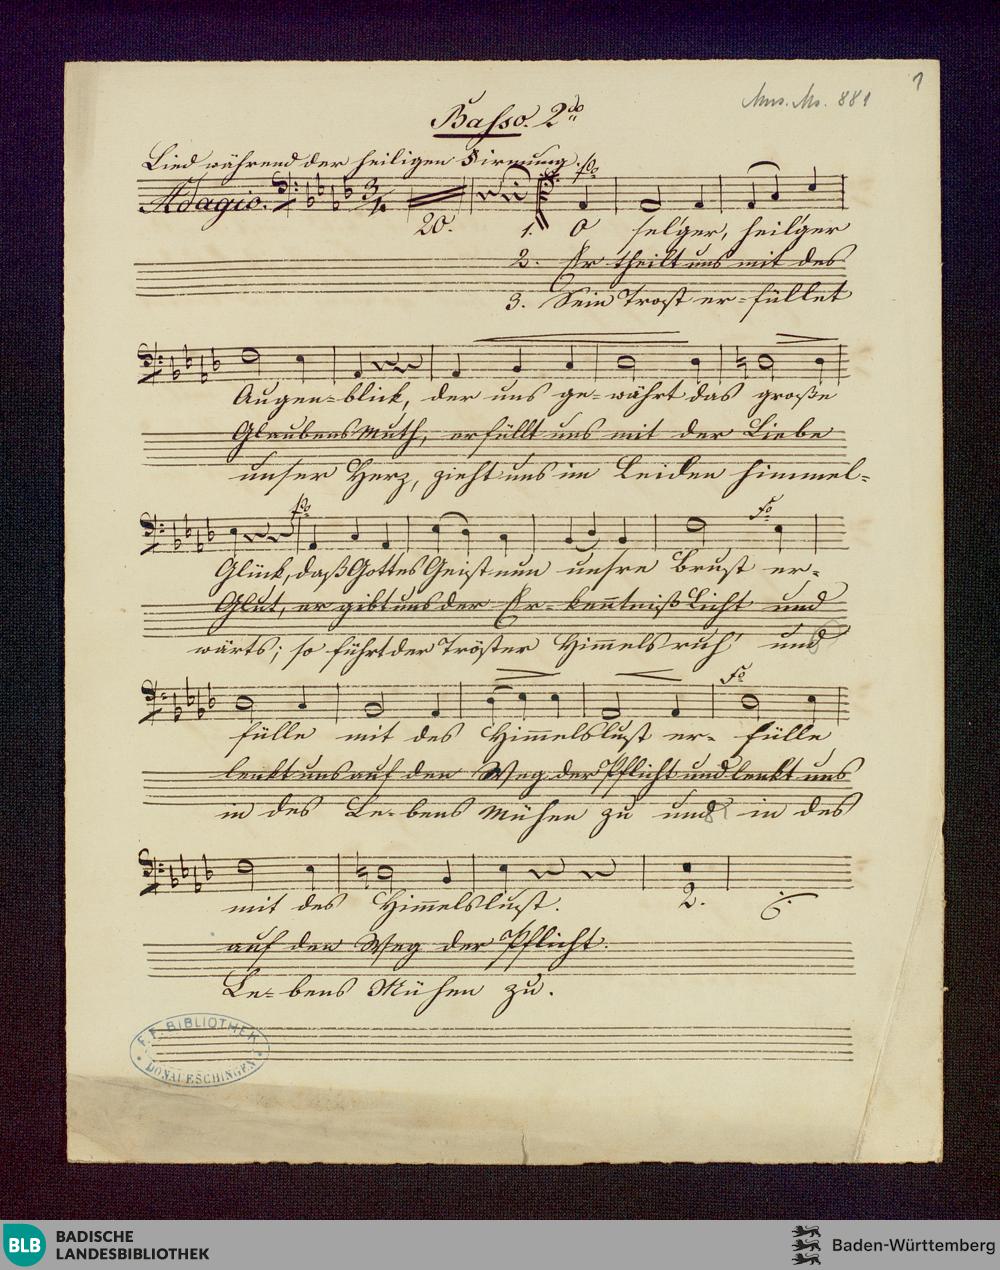 1
Mus. Ms. 881
Basso. 2do
Lied während der heiligen Firmung.
Adagio. 3/4 po
20. 1. O sel'ger, heil'ger
2. Er theilt uns mit des
3. Sein Trost er=füllet
Augen=blick, der uns ge=währt das große
Glaubens Muth, erfüllt uns mit der Liebe
unser Herz, zieht uns im Leiden himmel=
po Fo
Glück, daß Gottes Geist nun unsre Brust er=
Glut, er gibt uns der Er=kenntniß Licht und
wärts; so führt der Tröster Himmelsruh' und
Fo
fülle mit des Himmelslust er= fülle
lenkt uns auf den Weg der Pflicht und lenkt uns
in des Le=bens Mühen zu und in des
mit des Himmelslust. 2.
auf den Weg der Pflicht.
Le=bens Mühen zu.
F. F. BIBLIOTHEK
DONAUESCHINGEN
BLB BADISCHE LANDESBIBLIOTHEK
Baden-Württemberg